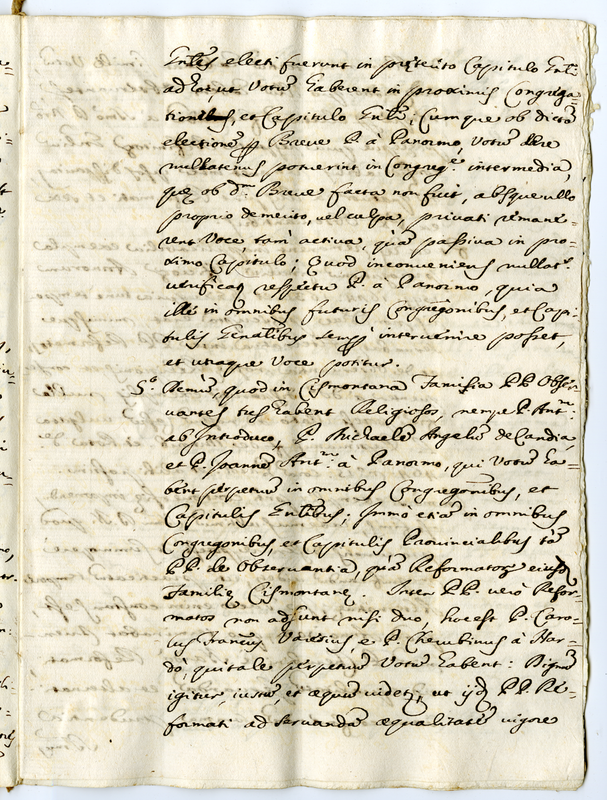 electi fuerunt in prętérito Capitulo Gnli
ad hoc, ut Votũ haberent in proximis Congrega=
tionibus, et Capitulo Gnli; Cumque ob dictã
electionẽ Breve P. à Panormo Votũ dare
nullatenus potuerint in Congreg.e intermedia,
quę ob d. Breve facta non fuit, absque ullo
proprio demerito, vel culpa, privati remane=
rent Voce tam activa, quã passiva in pro=
ximo Capitulo; Quod inconveniens nullat.s
verificaq respectu P. à Panormo, quia
ille in omnibus futuris Congregonibus, et Capi=
tulis Gnalibus intervenire posset,
et utraque Voce potitur.
5.o Demũ, quod in Cismontana Familia PP. Obser=
vantes tres habent Religiosos, nempe P. Ant.m
ab Introduco, P. Michaelẽ Angelũ de Candia,
et P. Joannẽ Ant.m à Panormo, qui Votũ ha=
bent perpetuũ in omnibus Congregonibus, et
Capitulis Gnlibus; Immò etiã in omnibus
Congregonibus, et Capitulis Provincialibus tã
PP. de Observantia, quã Reformatorũ eiusd
Familię Cismontanę. Inter PP. verò Refor=
matos non adsunt nisi duo, hoc est P. Caro=
lus Francus Varisius, e P. Cherubinus à Nar=
dò, qui tale perpetuũ Votũ habent: Dignũ
igitur, iustũ, et æquũ videtr, ut ijd PP. Re=
formati ad servandã æqualitatẽ vigore